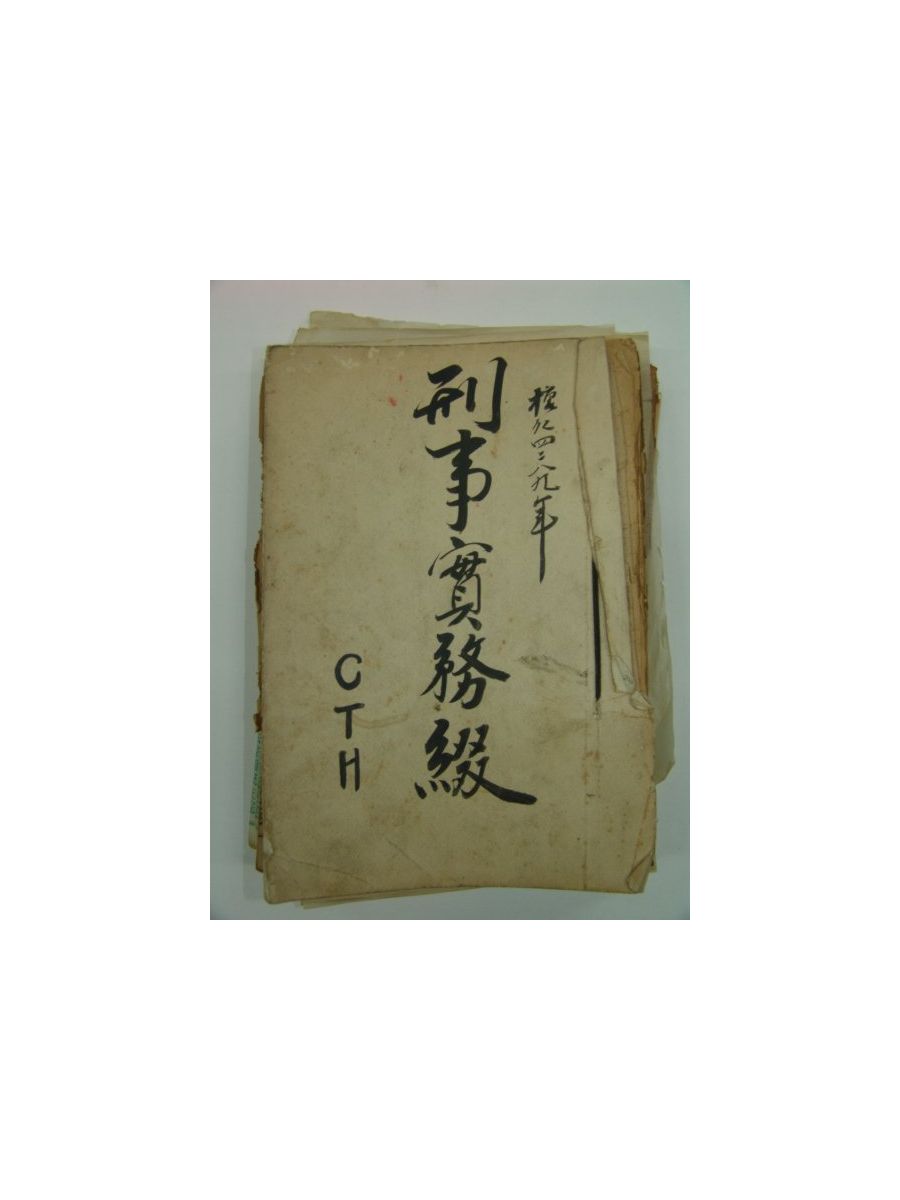 檀紀四二八九年
刑事實務綴
CTH